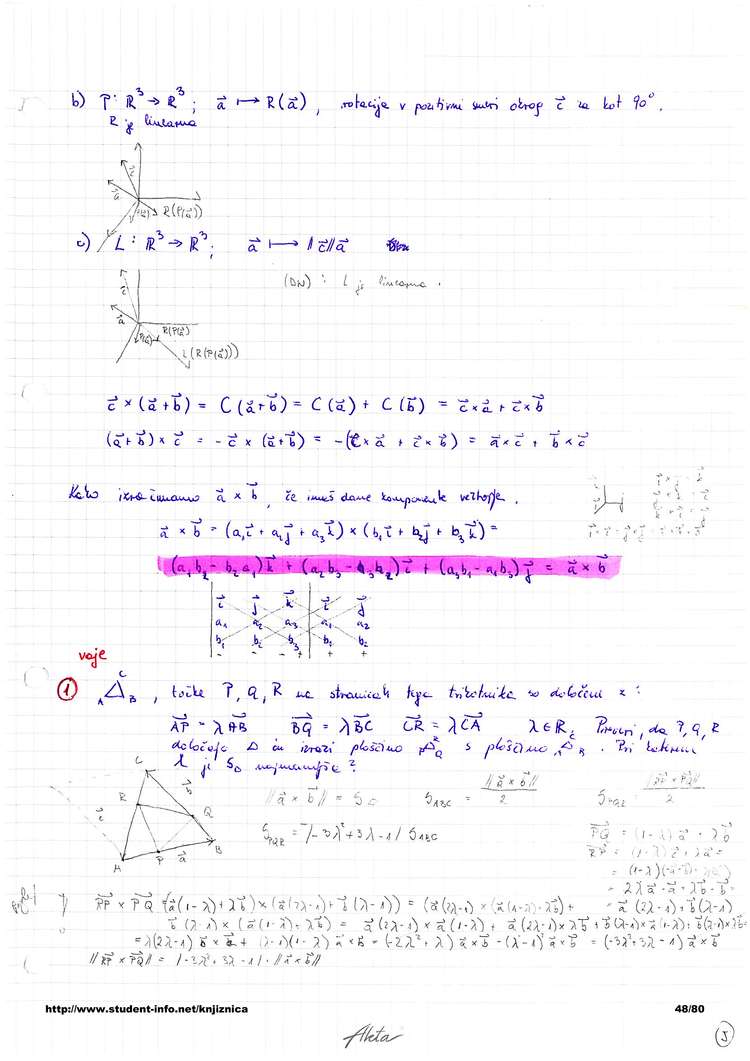 b) P: ℝ³ → ℝ³; a⃗ ↦ R(a⃗), rotacija v pozitivni smeri okrog c⃗ za kot 90°.
R je linearna
R(P(a⃗))
c) L: ℝ³ → ℝ³; a⃗ ↦ ||c⃗||a⃗
(DN): L je linearna.
c⃗
a⃗
P(a⃗)
R(P(a⃗))
L(R(P(a⃗)))
c⃗ × (a⃗+b⃗) = C(a⃗+b⃗) = C(a⃗) + C(b⃗) = c⃗×a⃗ + c⃗×b⃗
(a⃗+b⃗) × c⃗ = -c⃗ × (a⃗+b⃗) = -(c⃗×a⃗ + c⃗×b⃗) = a⃗×c⃗ + b⃗×c⃗
Kako izračunamo a⃗ × b⃗, če imaš dane komponente vektorjev.
a⃗ × b⃗ = (a₁i⃗ + a₂j⃗ + a₃k⃗) × (b₁i⃗ + b₂j⃗ + b₃k⃗) =
(a₁b₂ - b₂a₁)k⃗ + (a₂b₃ - a₃b₂)i⃗ + (a₃b₁ - a₁b₃)j⃗ = a⃗ × b⃗
i⃗ j⃗ k⃗ i⃗ j⃗
a₁ a₂ a₃ a₁ a₂
b₁ b₂ b₃ b₁ b₂
- - - + + +
vaje
① A B C, točke P, Q, R na stranicah tega trikotnika so določene z:
AP⃗ = λAB⃗ BQ⃗ = λBC⃗ CR⃗ = λCA⃗ λ∈ℝ, Preveri, da P, Q, R
določajo Δ in izrazi ploščino Δ s ploščino Δ. Pri katerem
λ je S najmanjša?
||a⃗ × b⃗|| = S S_ABC = ||a⃗ × b⃗|| / 2 S_PQR = ||RP⃗ × PQ⃗|| / 2
C
R
Q
A
P
B
a⃗
b⃗
c⃗
S_PQR = |-3λ²+3λ-1| S_ABC
PQ⃗ = (1-λ)a⃗ + λb⃗
RP⃗ = (1-λ)c⃗ + λa⃗ =
= 2λa⃗ - a⃗ + λb⃗ - b⃗ =
= a⃗(2λ-1) + b⃗(λ-1)
= (-3λ²+3λ-1) a⃗×b⃗
||RP⃗ × PQ⃗|| = |-3λ²+3λ-1| · ||a⃗×b⃗||
http://www.student-info.net/knjiznica
48/80
Akta
5